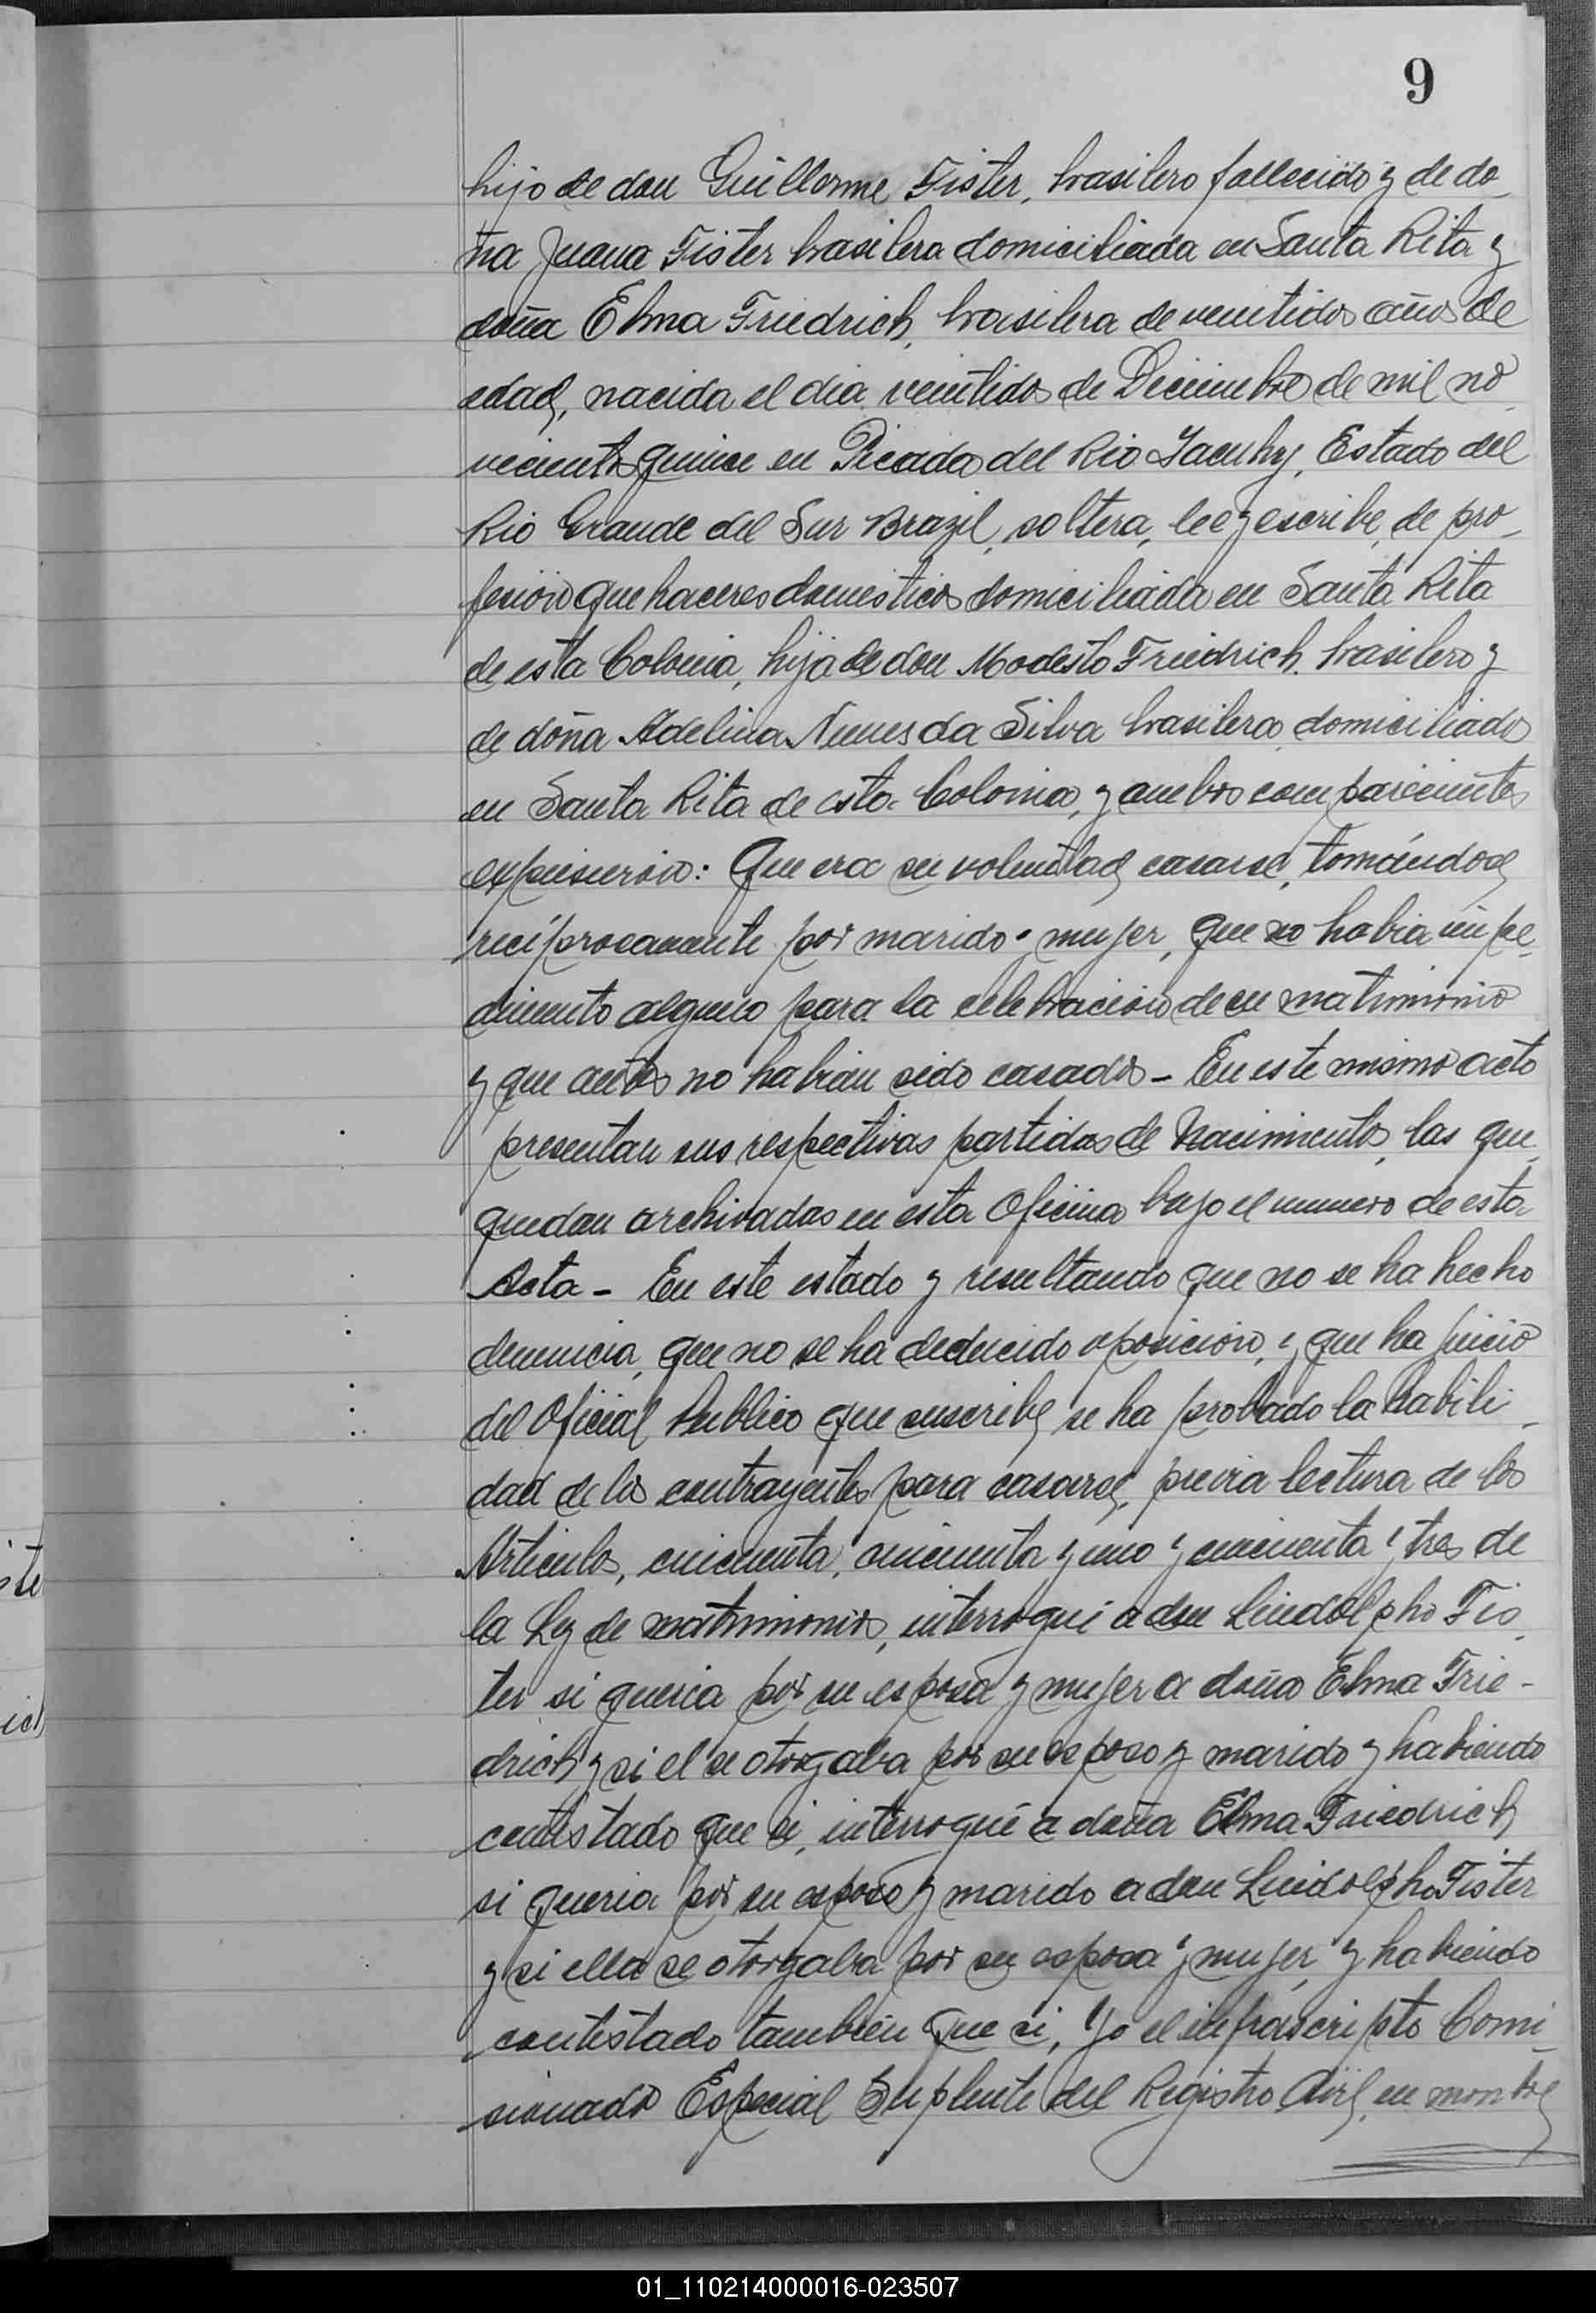 9
hijo de don Guillerme Fister, brasilero fallecido y de do_
ña Juana Fister brasilera domiciliada en Santa Rita y
doña Elma Friedrich, brasilera de venitidos años de
edad, nacida el dia veintidos de Diciembre de mil no_
vecientos quince en Picada del Rio Jacuhy, Estado del
Rio Grande del Sur Brazil, soltera, lee y escribe, de pro_
fesión que haceres domesticos domiciliada en Santa Rita
de esta Colonia, hija de don Modesto Friedrich brasilero y
de doña Adelina Nunes da Silva brasilera domiciliados
en Santa Rita de esta Colonia, y ambos comparecientes
expusieron: Que era su voluntad casarse, tomándose
recíprocamente por marido y mujer, que no habia impe_
dimento alguno para la celebración de su matrimonio
y que antes no habian sido casados - En este mismo acto
presentan sus respectivas partidas de Nacimientos, las que
quedan archivadas en esta Oficina bajo el numero de esta
Acta - En este estado y resultando que no se ha hecho
denuncia, que no se ha deducido oposición, y que ha juicio
del Oficial Publico que suscribe se ha probado la habili_
dad de los contrayentes para casarse, previa lectura de los
Articulos, cincuenta, cincuenta y uno y cincuenta y tres de
la Ley de matrimonios, interrogué a don Lindolpho Fis_
ter si queria por su esposa y mujer a doña Elma Frie-
drich y si el se otorgaba por su esposo y marido y habiendo
contestado que si, interrogué a doña Elma Friedrich
si queria por su esposo y marido a don Lindolpho Fister
y si ella se otorgaba por su esposa y mujer, y habiendo
contestado también que si, Yo el infrascripto Comi_
sionado Especial Suplente del Registro Civil, en nombre
01_110214000016-023507